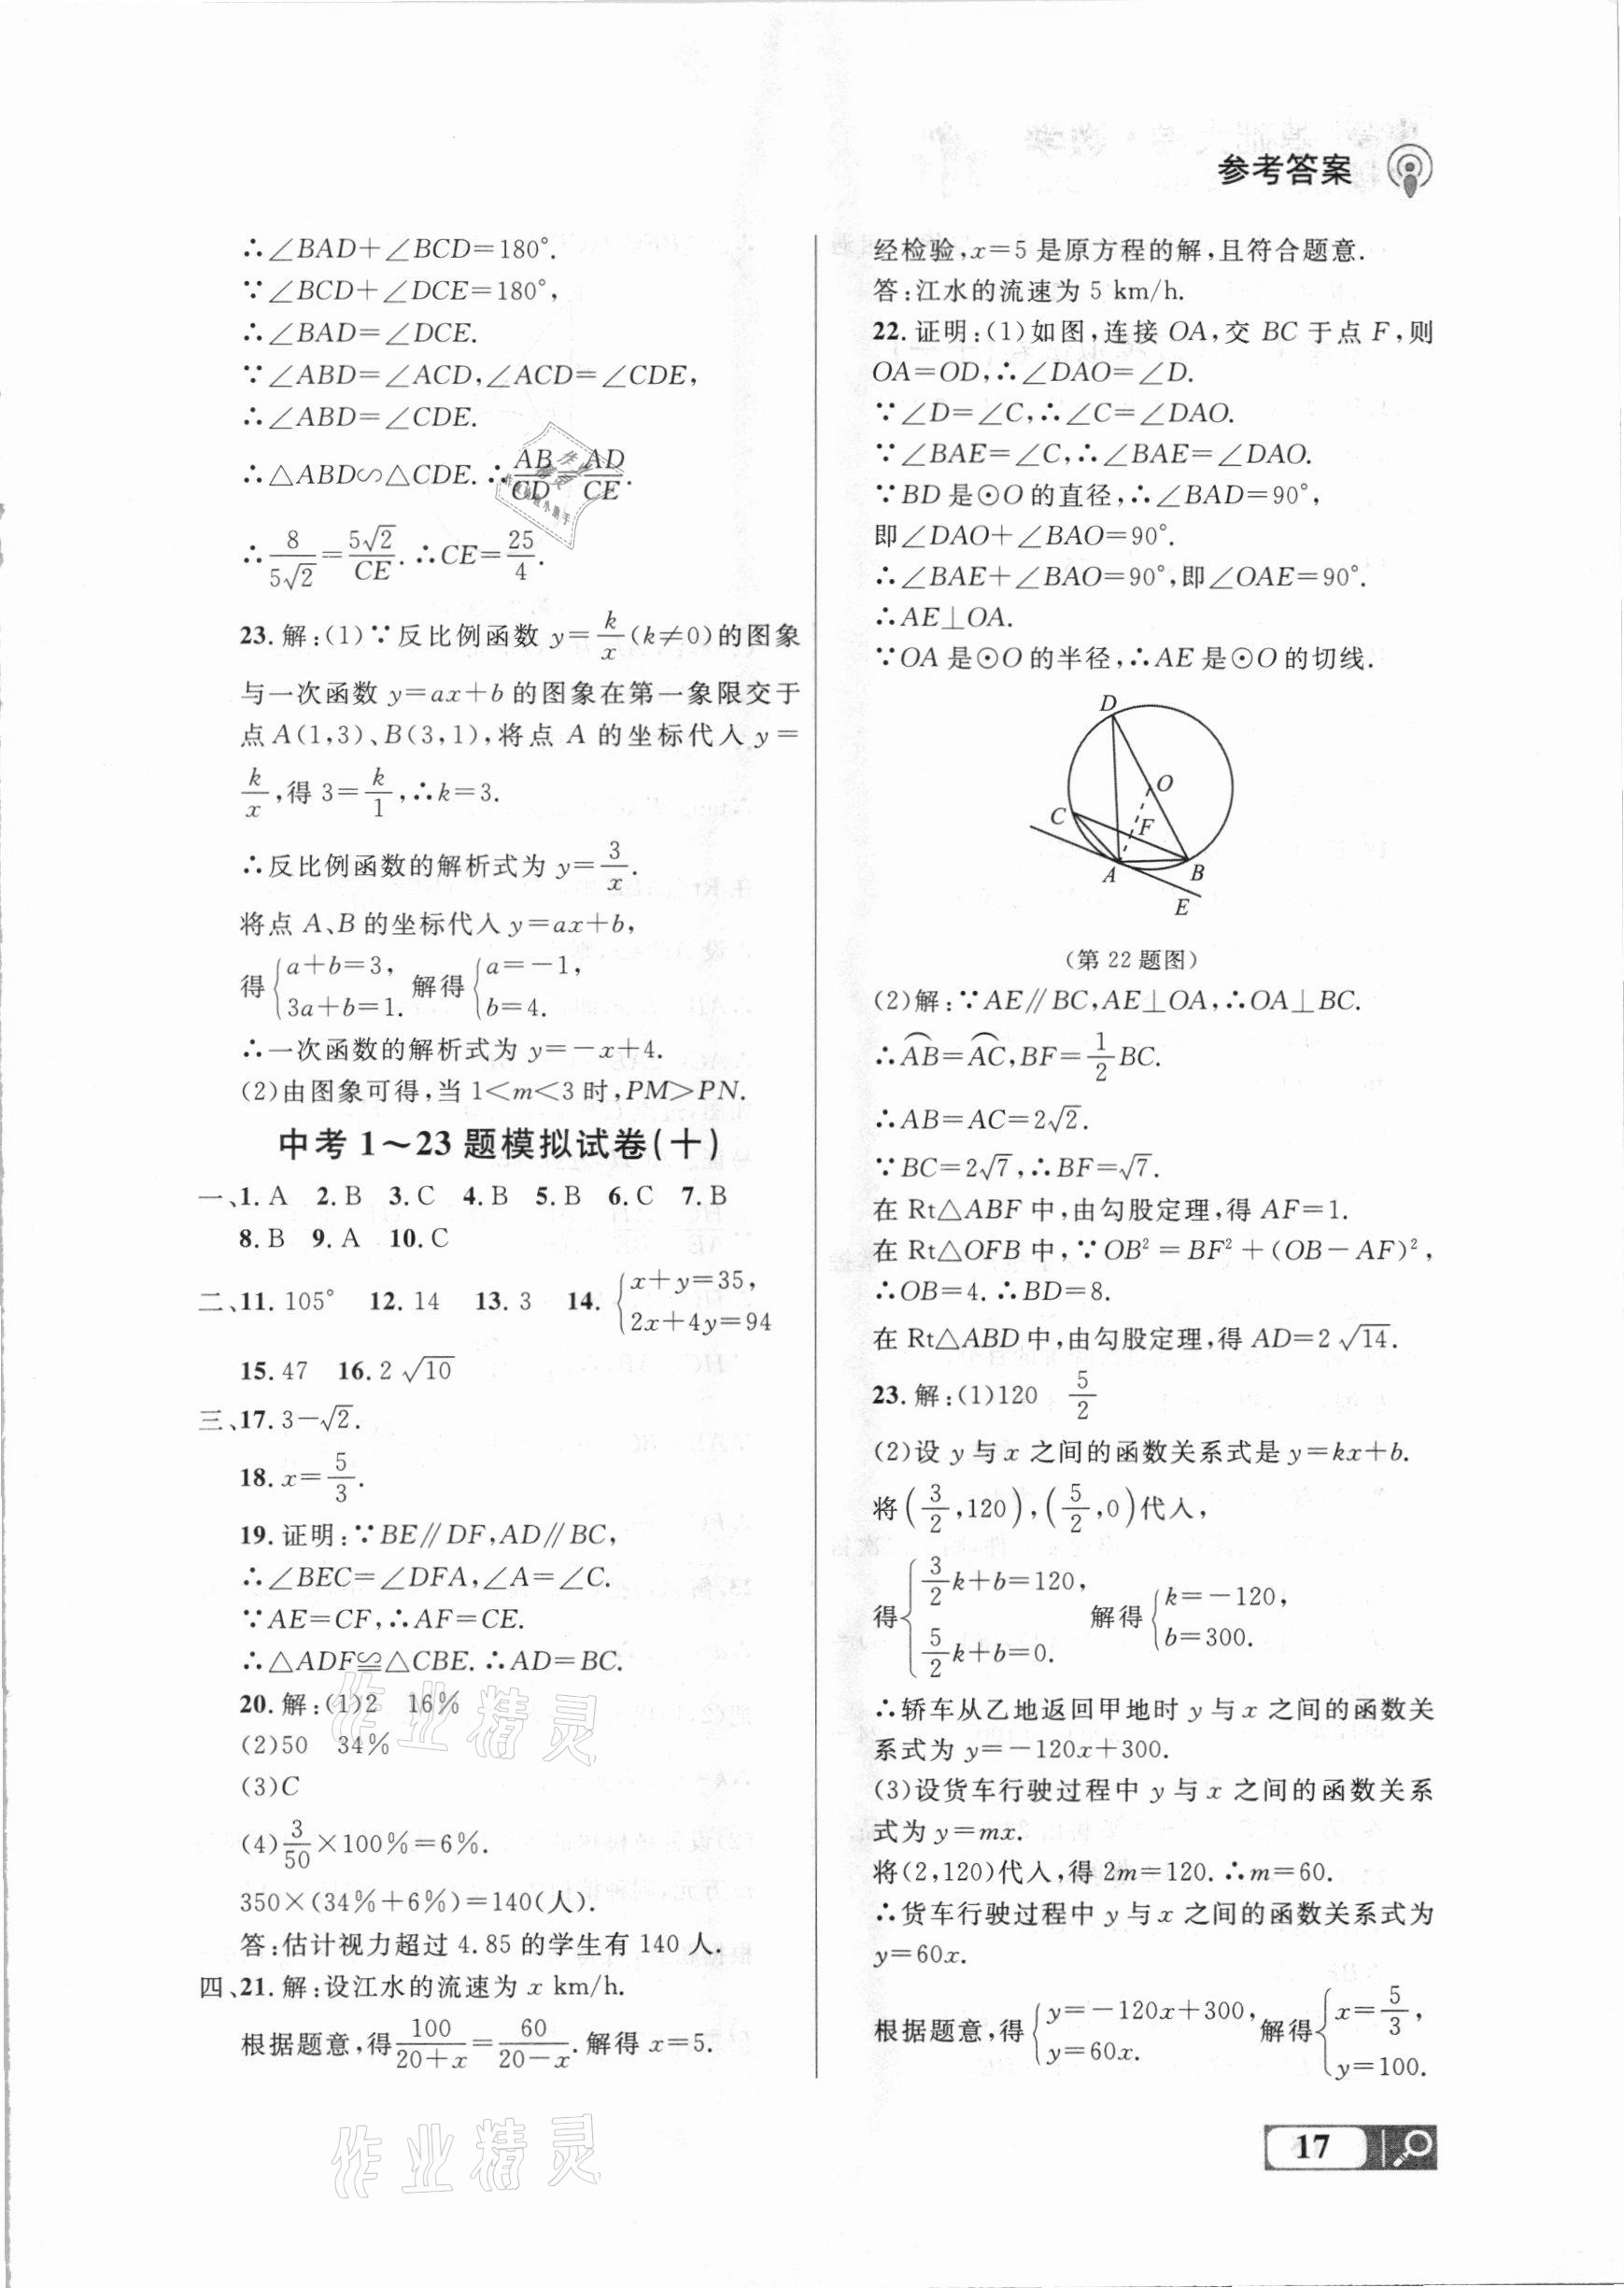 参考答案
∴∠BAD+∠BCD=180°.
∵∠BCD+∠DCE=180°,
∴∠BAD=∠DCE.
∵∠ABD=∠ACD,∠ACD=∠CDE,
∴∠ABD=∠CDE.
∴△ABD∽△CDE.∴AB/CD=AD/CE.
∴8/(5√2)=5√2/CE.∴CE=25/4.
23.解:(1)∵反比例函数 y=k/x(k≠0)的图象
与一次函数 y=ax+b 的图象在第一象限交于
点A(1,3)、B(3,1),将点 A 的坐标代入 y=
k/x,得 3=k/1,∴k=3.
∴反比例函数的解析式为 y=3/x.
将点 A、B 的坐标代入 y=ax+b,
得{a+b=3, 3a+b=1. 解得{a=-1, b=4.
∴一次函数的解析式为 y=-x+4.
(2)由图象可得,当 1<m<3 时,PM>PN.
中考 1~23 题模拟试卷(十)
一、1. A 2. B 3. C 4. B 5. B 6. C 7. B
8. B 9. A 10. C
二、11. 105° 12. 14 13. 3 14. {x+y=35, 2x+4y=94
15. 47 16. 2√10
三、17. 3-√2.
18. x=5/3.
19.证明:∵BE∥DF,AD∥BC,
∴∠BEC=∠DFA,∠A=∠C.
∵AE=CF,∴AF=CE.
∴△ADF≌△CBE.∴AD=BC.
20.解:(1)2 16%
(2)50 34%
(3)C
(4)3/50×100%=6%.
350×(34%+6%)=140(人).
答:估计视力超过 4.85 的学生有 140 人.
四、21.解:设江水的流速为 x km/h.
根据题意,得100/(20+x)=60/(20-x).解得 x=5.
经检验,x=5 是原方程的解,且符合题意.
答:江水的流速为 5 km/h.
22.证明:(1)如图,连接 OA,交 BC 于点 F,则
OA=OD,∴∠DAO=∠D.
∵∠D=∠C,∴∠C=∠DAO.
∵∠BAE=∠C,∴∠BAE=∠DAO.
∵BD 是⊙O 的直径,∴∠BAD=90°,
即∠DAO+∠BAO=90°.
∴∠BAE+∠BAO=90°,即∠OAE=90°.
∴AE⊥OA.
∵OA 是⊙O 的半径,∴AE 是⊙O 的切线.
D
O
C
F
A
B
E
(第 22 题图)
(2)解:∵AE∥BC,AE⊥OA,∴OA⊥BC.
∴⌒AB=⌒AC,BF=1/2BC.
∴AB=AC=2√2.
∵BC=2√7,∴BF=√7.
在 Rt△ABF 中,由勾股定理,得 AF=1.
在 Rt△OFB 中,∵OB²=BF²+(OB-AF)²,
∴OB=4.∴BD=8.
在 Rt△ABD 中,由勾股定理,得 AD=2√14.
23.解:(1)120 5/2
(2)设 y 与 x 之间的函数关系式是 y=kx+b.
将(3/2,120),(5/2,0)代入,
得{3/2k+b=120, 5/2k+b=0. 解得{k=-120, b=300.
∴轿车从乙地返回甲地时 y 与 x 之间的函数关
系式为 y=-120x+300.
(3)设货车行驶过程中 y 与 x 之间的函数关系
式为 y=mx.
将(2,120)代入,得 2m=120.∴m=60.
∴货车行驶过程中 y 与 x 之间的函数关系式为
y=60x.
根据题意,得{y=-120x+300, y=60x. 解得{x=5/3, y=100.
17
作业精灵
作业精灵